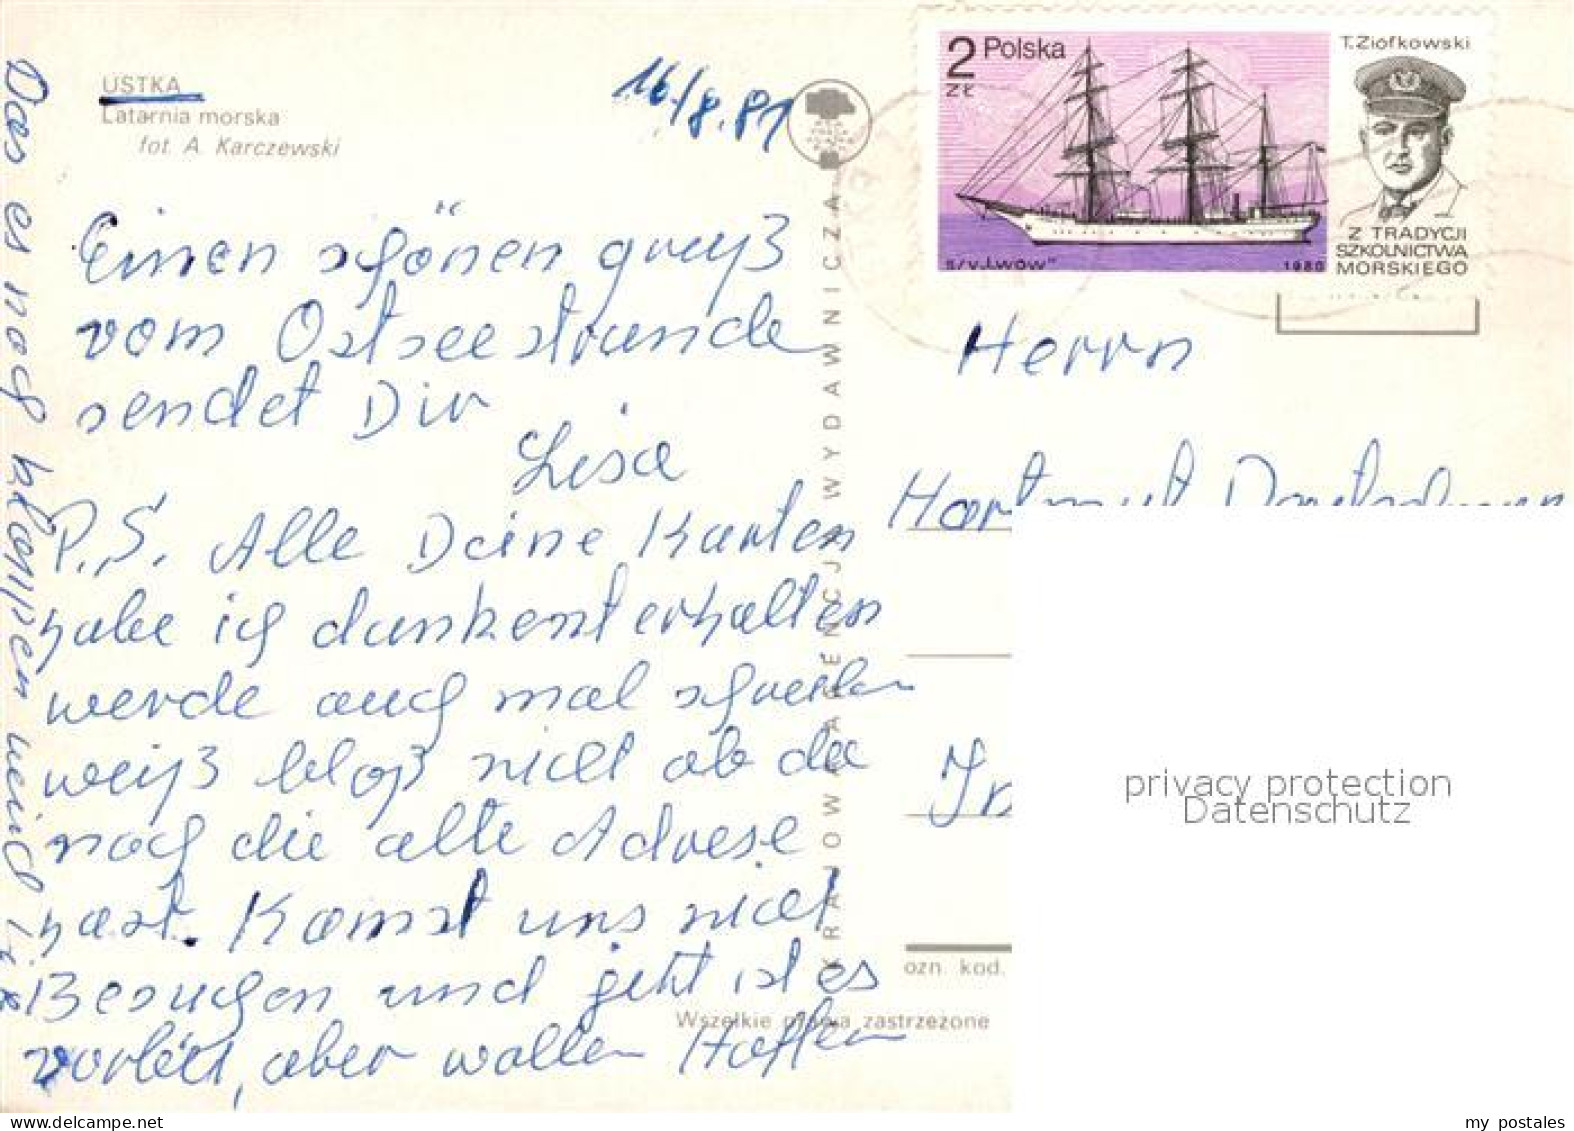 USTKA
Latarnia morska
fot. A. Karczewski
16/8.81
2 Polska
ZŁ
T. Ziółkowski
s/v "Lwów"
1980
Z TRADYCJI
SZKOLNICTWA
MORSKIEGO
Einen schönen gruß
vom Ostseestrande
sendet Dir
Lisa
P.S. Alle Deine Karten
habe ich dankent erhalten
werde auch mal schreiben
weiß bloß nicht ob du
noch die alte Adrese
hast. Komst uns nicht
Besuchen und jetzt ist es
vorbei, aber wollen Hoffen
Das es noch klappen wird
KRAJOWA AGENCJA WYDAWNICZA
Herrn
Hartmut
ozn. kod.
Wszelkie prawa zastrzeżone
privacy protection
Datenschutz
my postales